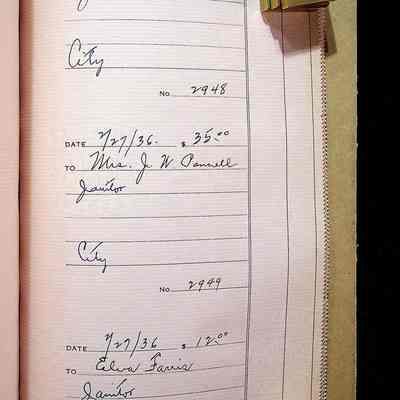 City
No 2948
DATE 2/27/36. $ 35.00
TO Mrs. J W Pannell
Janitor
City
No 2949
DATE 2/27/36 $ 12.00
TO Elva Farris
Janitor